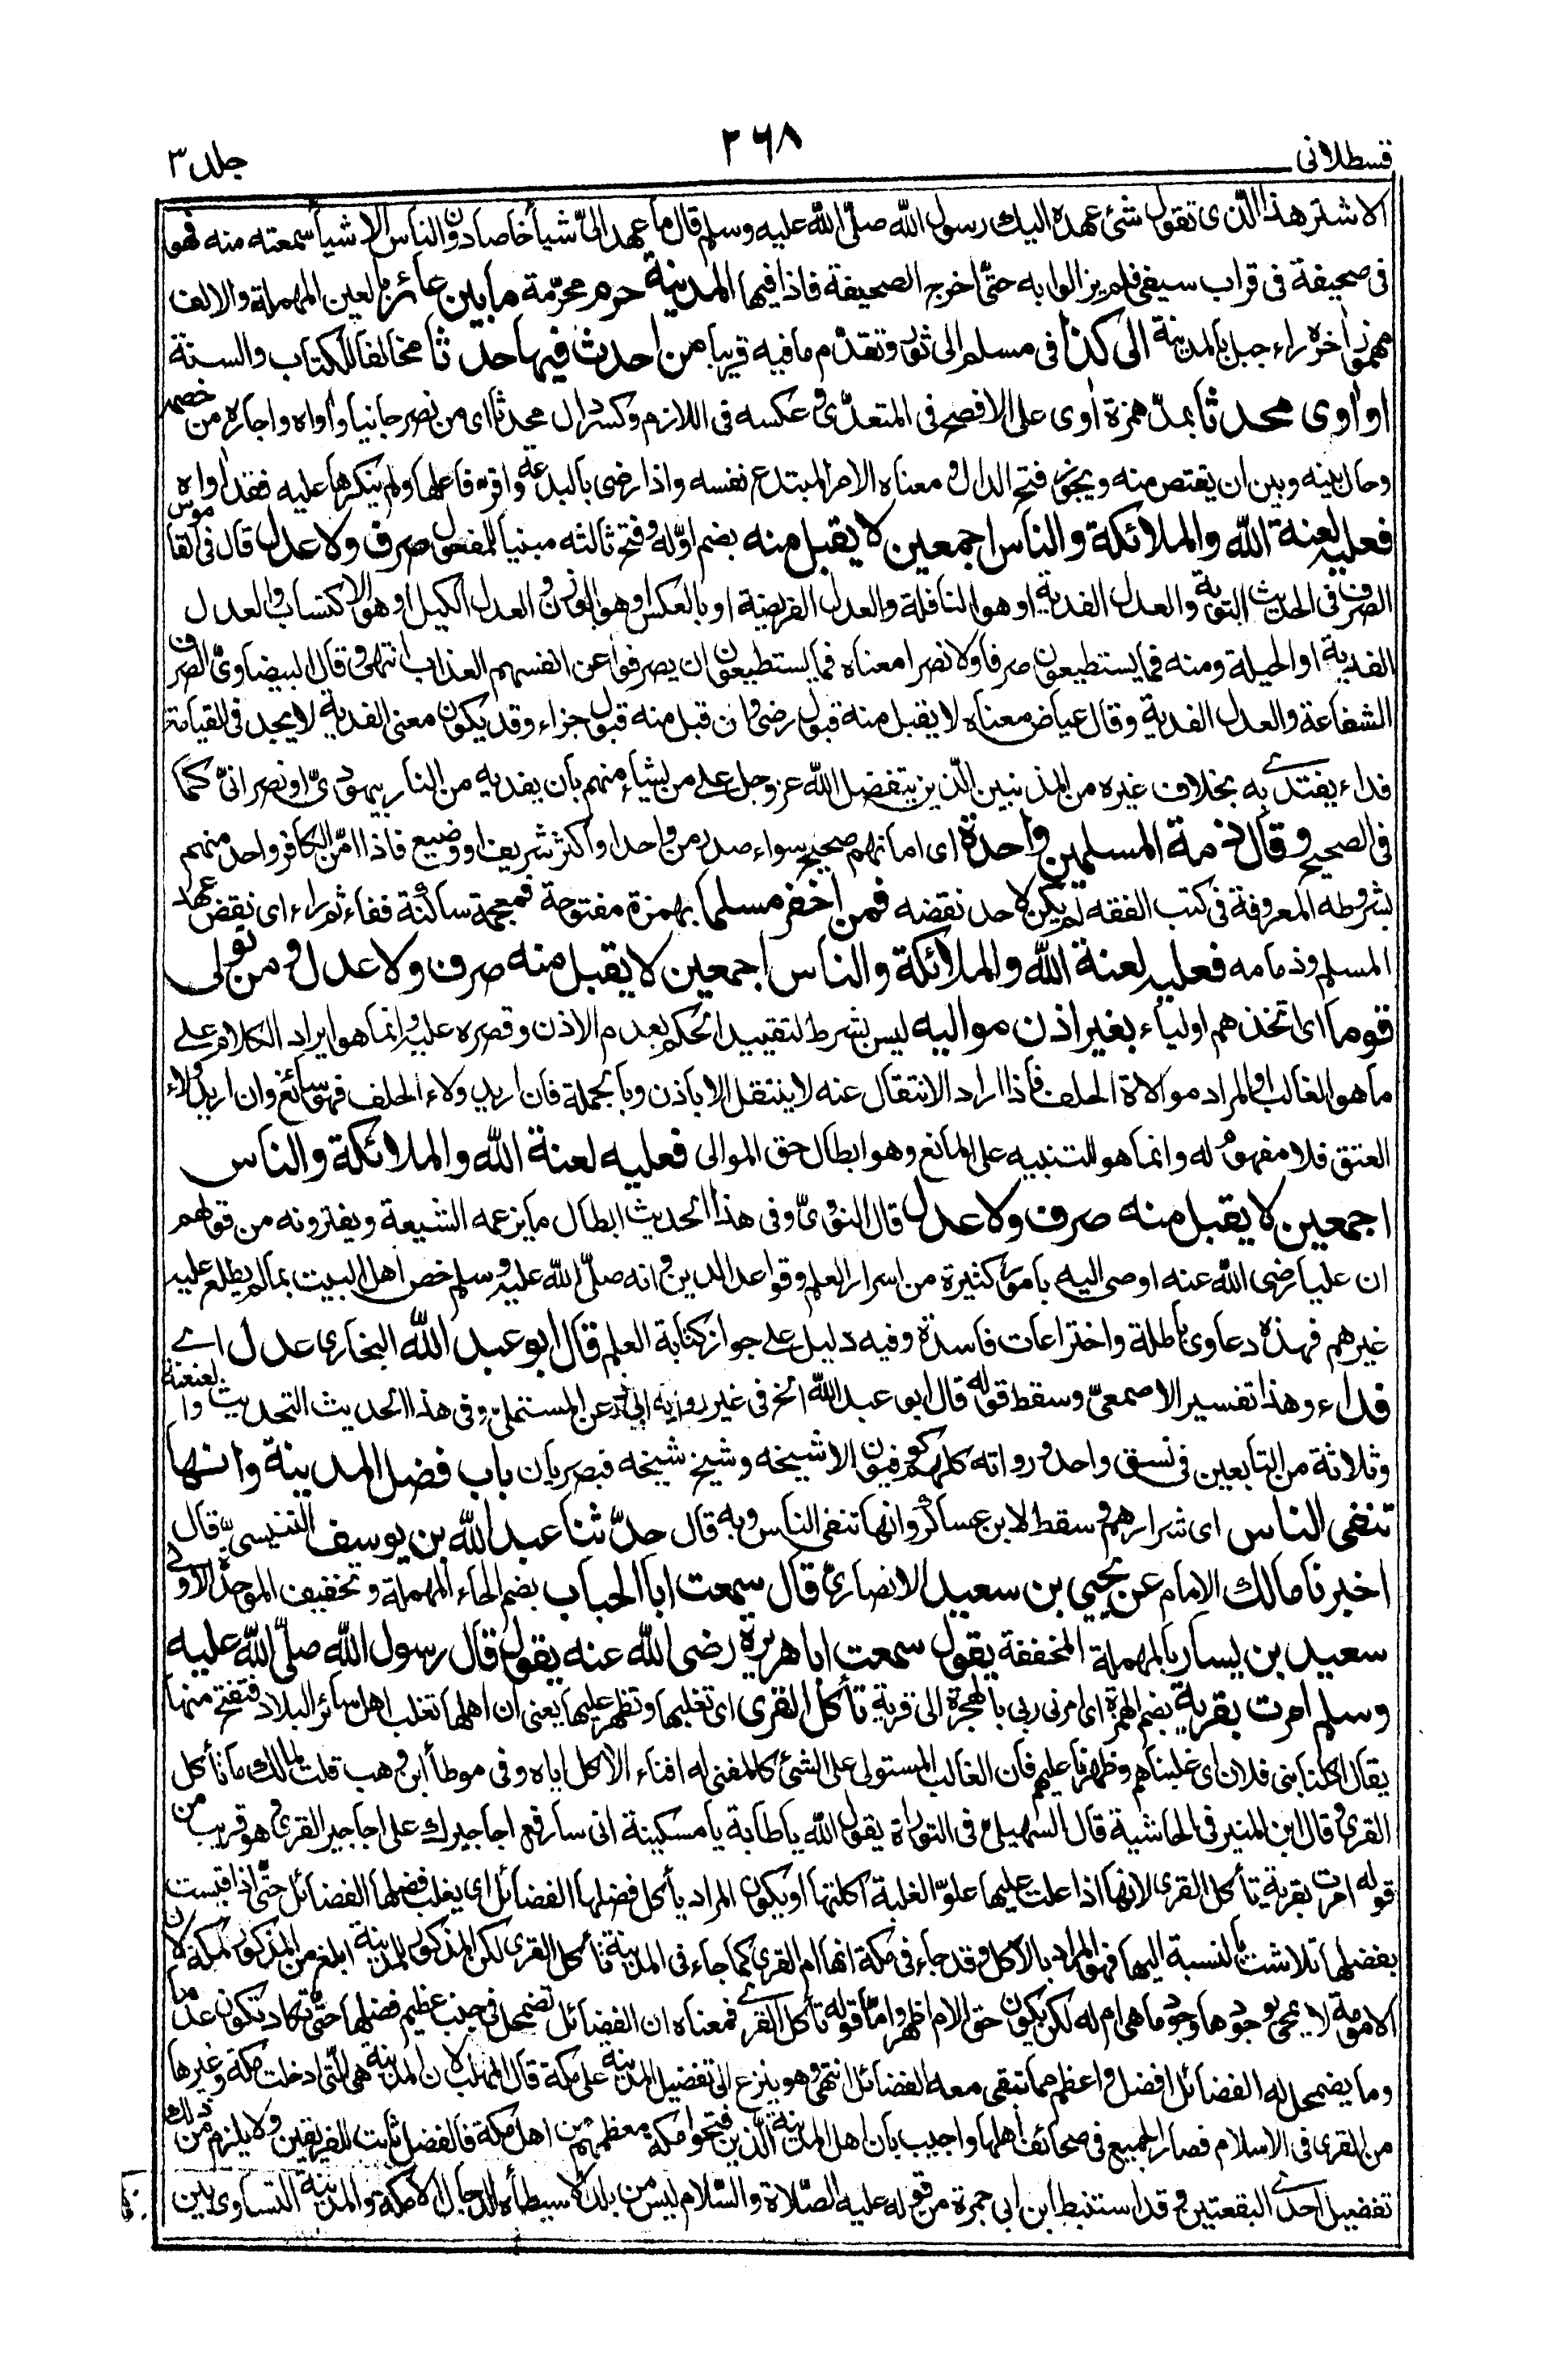 قسطلانی
٢٦٨
جلد ٣
الاشتر هذا الذى تقول شئ عهده اليك رسول الله صلى الله عليه وسلم قال ما عهد الىّ شيأ خاصا دون الناس الا شيأ سمعته منه فهو
فى صحيفة فى قراب سيفى فلم يزالوا به حتى اخرج الصحيفة فاذا فيها المدينة حرم محرّمة ما بين عائر بالعين المهملة والالف
مهموز اخره راء جبل بالمدينة الى كذا فى مسلم الى ثور وتقدّم ما فيه قريبا من احدث فيها حدثا مخالفا للكتاب والسنة
او اوى محدثا بمدّ همزة اوى على الافصح فى المتعدّى وعكسه فى اللازم وكسر دال محدثا اى من نصر جانيا واواه واجاره من خصمه
وحال بينه وبين ان يقتص منه ويجوز فتح الدال ومعناه الامر المبتدع نفسه واذا رضى بالبدعة واقر فاعلها ولم ينكرها عليه فقد اواه
فعليه لعنة الله والملائكة والناس اجمعين لا يقبل منه بضم اوّله وفتح ثالثه مبنيا للمفعول صرف ولا عدل قال فى القاموس
الصرف فى الحديث التوبة والعدل الفدية او هو النافلة والعدل الفريضة او بالعكس او هو الوزن والعدل الكيل او هو الاكتساب والعدل
الفدية او الحيلة ومنه فما يستطيعون صرفا ولا نصرا معناه فما يستطيعون ان يصرفوا عن انفسهم العذاب انتهى وقال البيضاوىّ الصرف
الشفاعة والعدل الفدية وقال عياض معناه لا يقبل منه قبول رضى وان قبل منه قبول جزاء وقد يكون معنى الفدية لا يجد فى القيامة
فداء يفتدى به بخلاف غيره من المذنبين الذين يتفضل الله عز وجل على من يشاء منهم بان يفديه من النار بيهودىّ او نصرانىّ كما
فى الصحيح وقال ذمة المسلمين واحدة اى امانهم صحيح سواء صدر من واحد او اكثر شريف او وضيع فاذا امّن الكافر واحد منهم
بشروطه المعروفة فى كتب الفقه لم يكن لاحد نقضه فمن اخفر مسلما بهمزة مفتوحة فمعجمة ساكنة ففاء ثم راء اى نقض عهد
المسلم وذمامه فعليه لعنة الله والملائكة والناس اجمعين لا يقبل منه صرف ولا عدل ومن تولى
قوما اى اتخذهم اولياء بغير اذن مواليه ليس بشرط لتقييد الحكم بعدم الاذن وقصره عليه وانما هو ايراد الكلام على
ما هو الغالب او المراد موالاة الحلف فاذا اراد الانتقال عنه لا ينتقل الا باذن وبالجملة فان اريد ولاء الحلف فهو سائغ وان اريد ولاء
العتق فلا مفهوم له وانما هو للتنبيه على المانع وهو ابطال حق الموالى فعليه لعنة الله والملائكة والناس
اجمعين لا يقبل منه صرف ولا عدل قال النووىّ وفى هذا الحديث ابطال ما يزعمه الشيعة ويفترونه من قولهم
ان عليا رضى الله عنه اوصى اليه بامور كثيرة من اسرار العلم وقواعد الدين وانه صلى الله عليه وسلم خص اهل البيت بما لم يطلع عليه
غيرهم فهذه دعاوى باطلة واختراعات فاسدة وفيه دليل على جواز كتابة العلم قال ابو عبد الله البخارى عدل اى
فداء وهذا تفسير الاصمعىّ وسقط قوله قال ابو عبد الله الخ فى غير رواية ابى ذر عن المستملى وفى هذا الحديث التحديث والعنعنة
وثلاثة من التابعين فى نسق واحد ورواته كلهم كوفيون الا شيخه وشيخ شيخه فبصريان باب فضل المدينة وانها
تنفى الناس اى شرارهم وسقط لابن عساكر وانها تنفى الناس وبه قال حدّثنا عبد الله بن يوسف التنيسىّ قال
اخبرنا مالك الامام عن يحيى بن سعيد الانصارى قال سمعت ابا الحباب بضم الحاء المهملة وتخفيف الموحدة الاولى
سعيد بن يسار بالمهملة المخففة يقول سمعت ابا هريرة رضى الله عنه يقول قال رسول الله صلّى الله عليه
وسلم امرت بقرية بضم الهمزة اى امرنى ربى بالهجرة الى قرية تأكل القرى اى تغلبها وتظهر عليها يعنى ان اهلها تغلب اهل سائر البلاد فتفتح منها
يقال اكلنا بنى فلان اى غلبناهم وظهرنا عليهم فان الغالب المستولى على الشئ كالمفنى له افناء الاكل اياه وفى موطأ ابن وهب قلت لمالك ما تأكل
القرى وقال ابن المنير فى الحاشية قال السهيلى فى التوراة يقول الله يا طابة يا مسكينة انى سارفع اجاجيرك على اجاجير القرى وهو قريب من
قوله امرت بقرية تأكل القرى لانها اذا علت عليها علوّ الغلبة اكلتها او يكون المراد يأكل فضلها الفضائل اى يغلب فضلها الفضائل حتى اذا قيست
بفضلها تلاشت بالنسبة اليها فهو المراد بالاكل وقد جاء فى مكة انها ام القرى كما جاء فى المدينة تأكل القرى لكن المذكور للمدينة ابلغ من المذكور لمكة لان
الامومة لا يمحى بوجودها وجود ما هى ام له لكن يكون حق الام اظهر واما قوله تأكل القرى فمعناه ان الفضائل تضمحل فى جنب عظيم فضلها حتى تكاد تكون عدما
وما يضمحل له الفضائل افضل واعظم مما تبقى معه الفضائل انتهى وهو ينزع الى تفضيل المدينة على مكة قال المهلب لان المدينة هى التى ادخلت مكة وغيرها
من القرى فى الاسلام فصار الجميع فى صحائف اهلها واجيب بان اهل المدينة الذين فتحوا مكة معظمهم من اهل مكة فالفضل ثابت للفريقين ولا يلزم من ذلك
تفضيل احدى البقعتين وقد استنبط ابن ابى جمرة من قوله عليه الصّلاة والسّلام ليس من بلد الا سيطأه الدجال الا مكة والمدينة التساوى بين